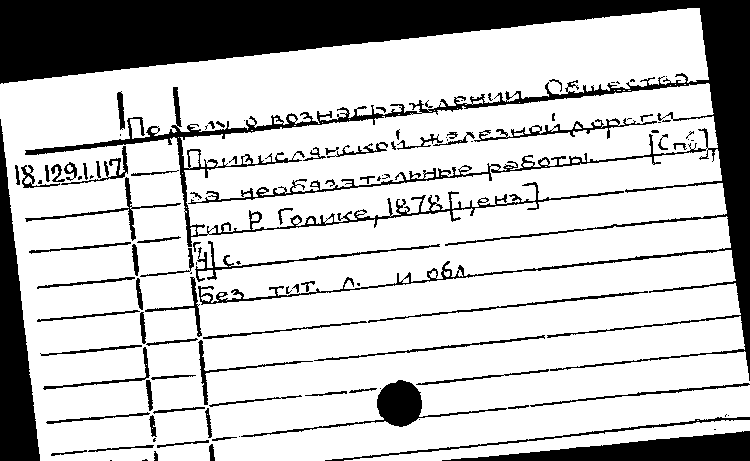 По делу о вознаграждении Общества
Привислянской железной дороги
18.129.1.117
за необязательные работы. [Спб],
тип. Р. Голике, 1878 [ценз.].
[4] с.
Без тит. л. и обл.